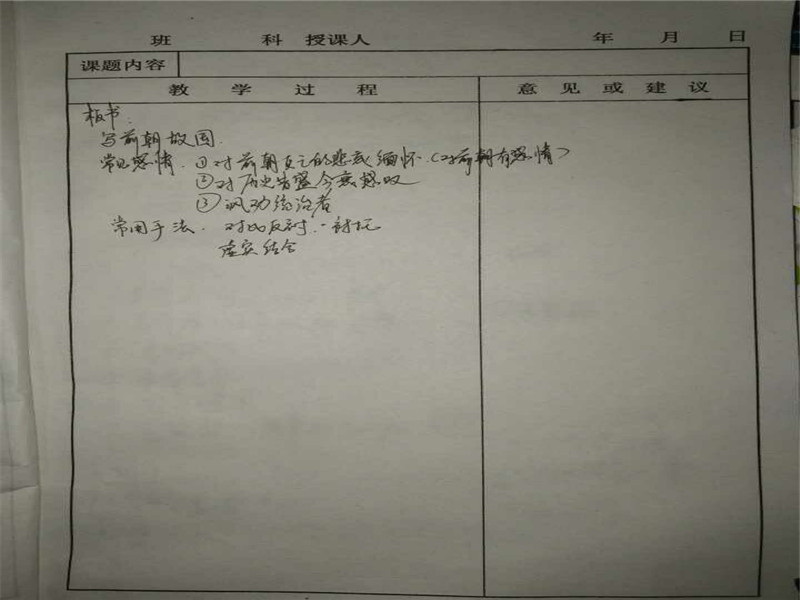 班 科 授课人 年 月 日
课题内容
教 学 过 程 意 见 或 建 议
板书:
写前朝故国
常见感情. ①对前朝灭亡的悲哀缅怀.(对前朝有感情)
②对历史昔盛今衰感叹
③讽劝统治者
常用手法. 对比反衬.
虚实结合